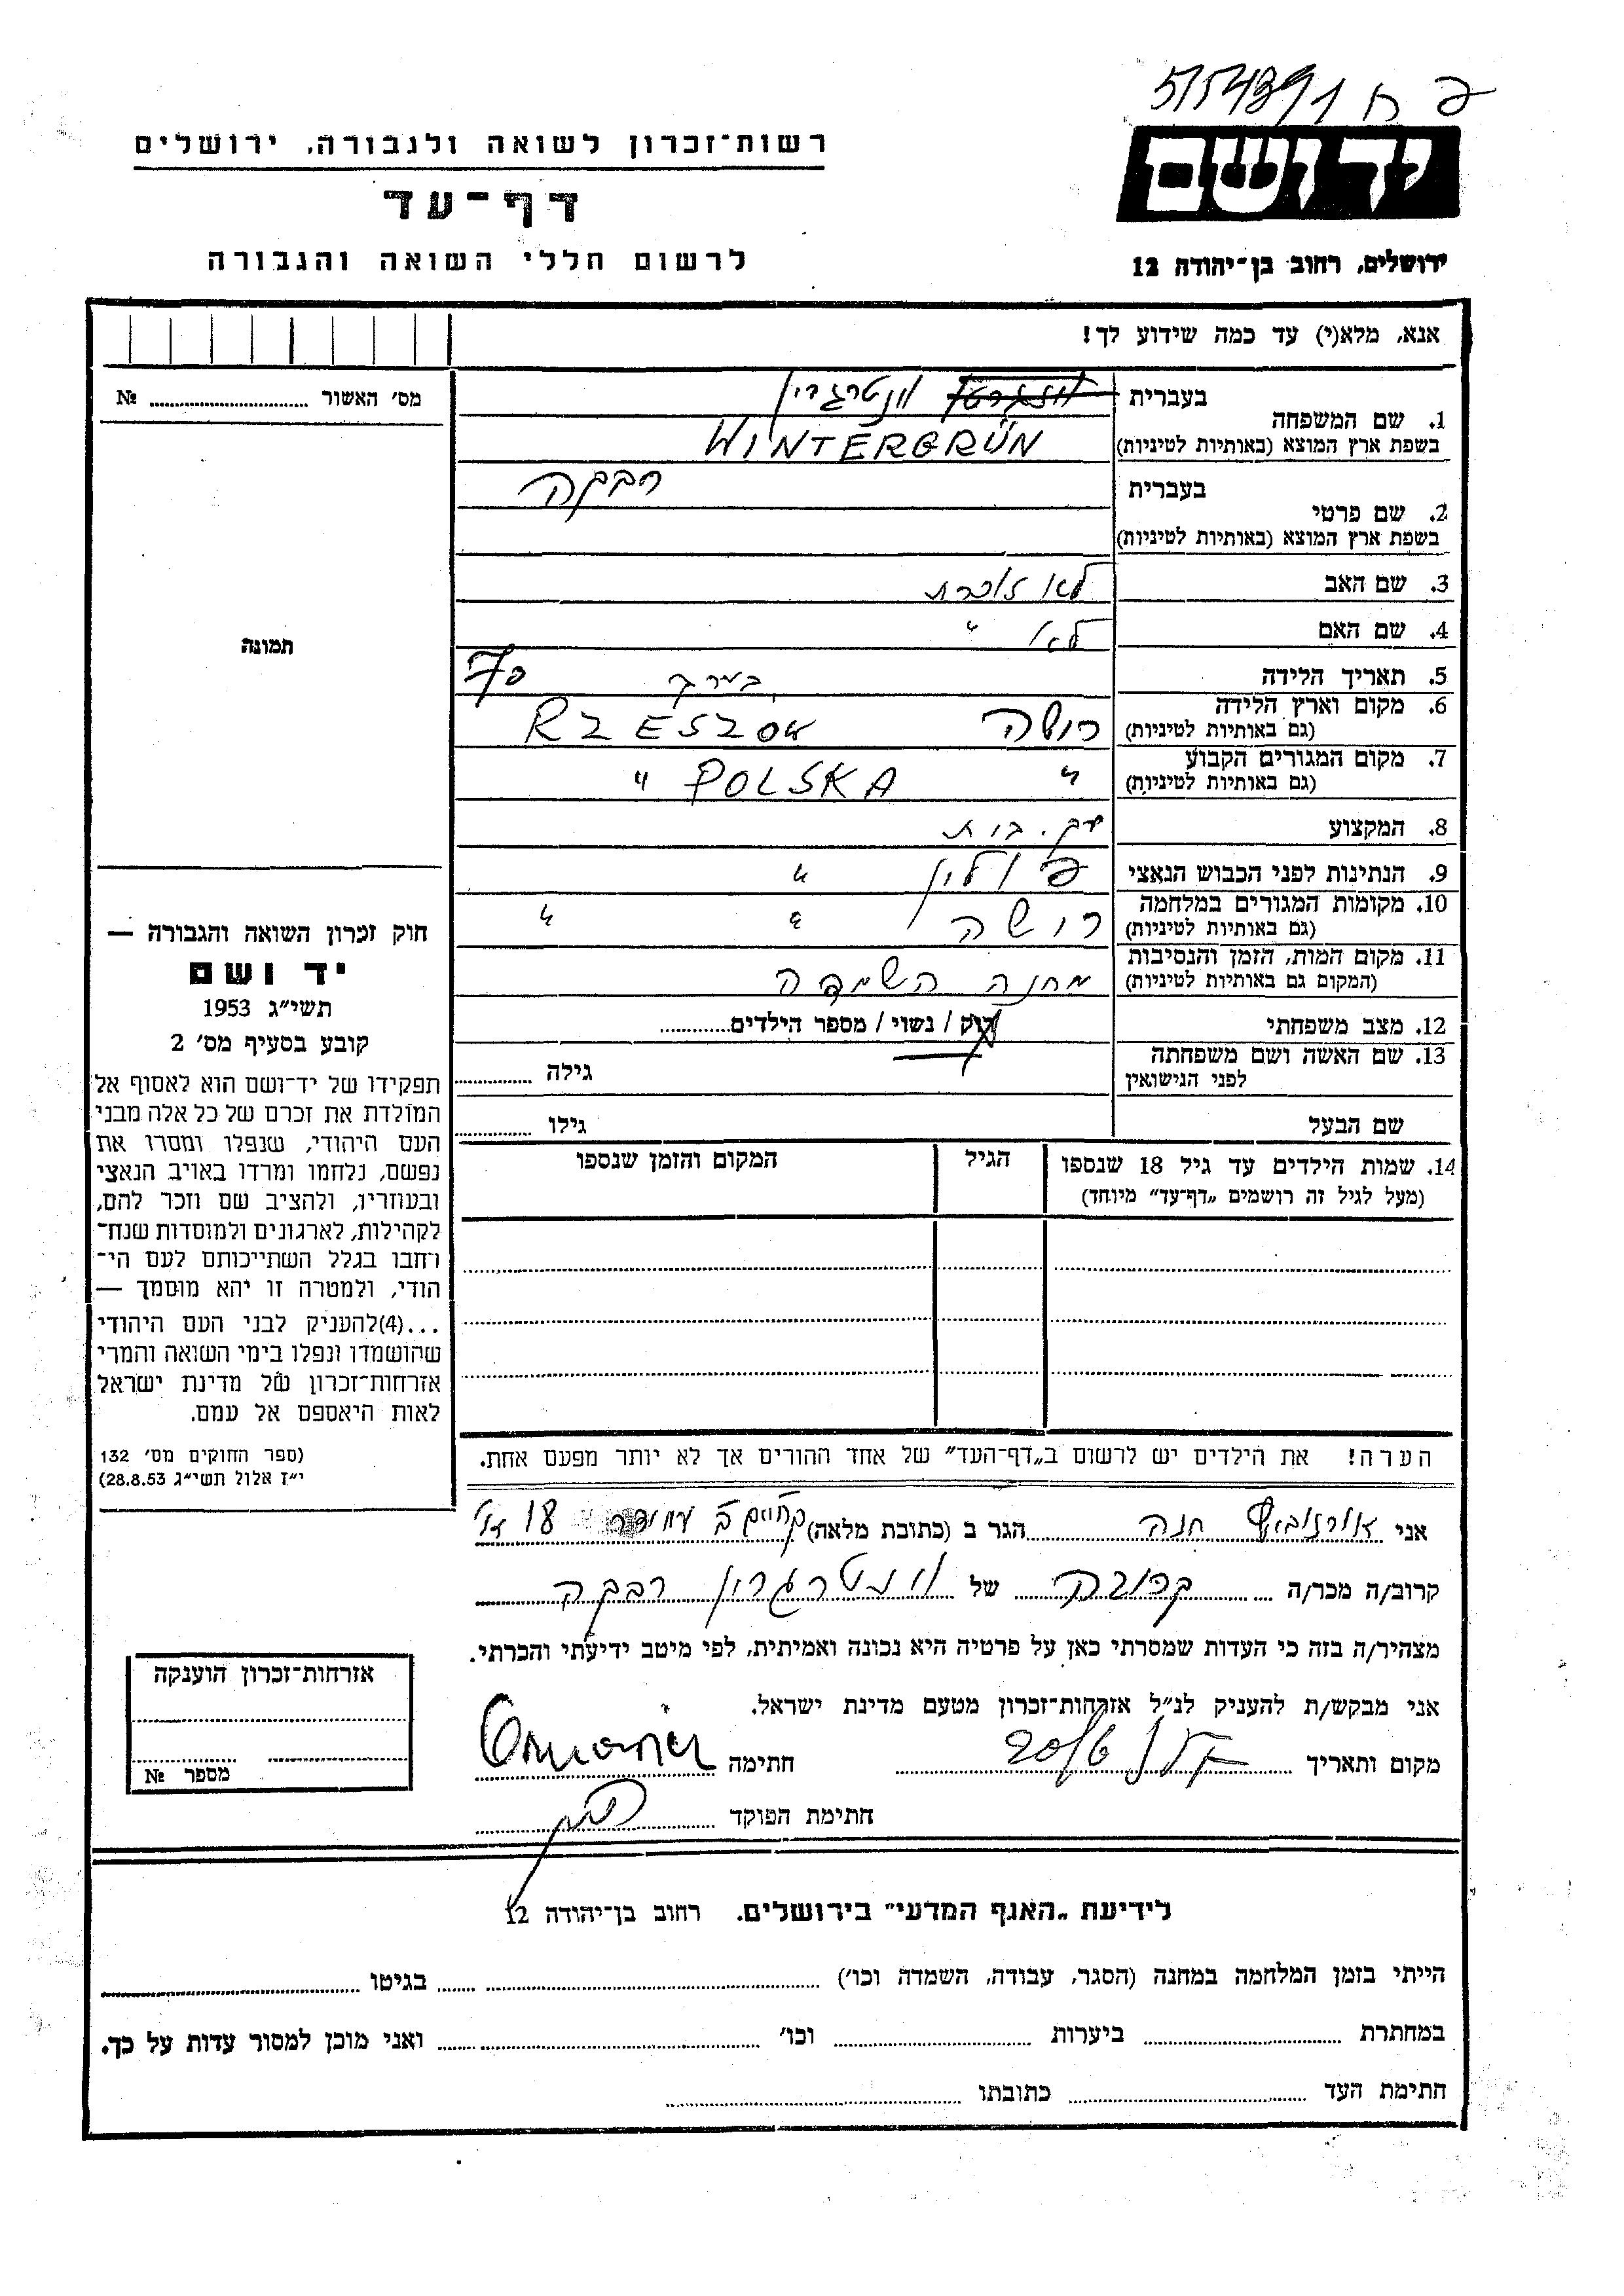 פ ח 5/54391
יד ושם
ירושלים, רחוב בן־יהודה 12
רשות־זכרון לשואה ולגבורה, ירושלים
דף־עד
לרשום חללי השואה והגבורה
אנא, מלא(י) עד כמה שידוע לך!
מס' האשור № 
תמונה
1. שם המשפחה בעברית וונטרגרין
בשפת ארץ המוצא (באותיות לטיניות) WINTERGRÜN
2. שם פרטי בעברית רבקה
בשפת ארץ המוצא (באותיות לטיניות)
3. שם האב לא זוכרת
4. שם האם לא "
5. תאריך הלידה בערך 70
6. מקום וארץ הלידה (גם באותיות לטיניות) רושה RZESZOW
7. מקום המגורים הקבוע (גם באותיות לטיניות) " POLSKA "
8. המקצוע עק. בית
9. הנתינות לפני הכבוש הנאצי פולין "
10. מקומות המגורים במלחמה (גם באותיות לטיניות) רושה " "
11. מקום המות, הזמן והנסיבות (המקום גם באותיות לטיניות) מחנה השמדה
12. מצב משפחתי רווק / נשוי / מספר הילדים
13. שם האשה ושם משפחתה לפני הנישואין גילה
שם הבעל גילו
14. שמות הילדים עד גיל 18 שנספו (מעל לגיל זה רושמים „דף־עד” מיוחד) הגיל המקום והזמן שנספו
הערה! את הילדים יש לרשום ב„דף־העד” של אחד ההורים אך לא יותר מפעם אחת.
חוק זכרון השואה והגבורה —
יד ושם
תשי״ג 1953
קובע בסעיף מס' 2
תפקידו של יד־ושם הוא לאסוף אל
המולדת את זכרם של כל אלה מבני
העם היהודי, שנפלו ומסרו את
נפשם, נלחמו ומרדו באויב הנאצי
ובעוזריו, ולהציב שם וזכר להם,
לקהילות, לארגונים ולמוסדות שנח־
רבו בגלל השתייכותם לעם הי־
הודי, ולמטרה זו יהא מוסמך —
...(4) להעניק לבני העם היהודי
שהושמדו ונפלו בימי השואה והמרי
אזרחות־זכרון של מדינת ישראל
לאות היאספם אל עמם.
(ספר החוקים מס' 132
י״ז אלול תשי״ג 28.8.53)
אני חנה הגר ב (כתובת מלאה) 18
קרוב/ה מכר/ה קרובה של וונטרגרין רבקה
מצהיר/ה בזה כי העדות שמסרתי כאן על פרטיה היא נכונה ואמיתית, לפי מיטב ידיעתי והכרתי.
אני מבקש/ת להעניק לנ״ל אזרחות־זכרון מטעם מדינת ישראל.
מקום ותאריך חתימה
חתימת הפוקד
אזרחות־זכרון הוענקה
מספר №
לידיעת „האגף המדעי” בירושלים, רחוב בן־יהודה 12
הייתי בזמן המלחמה במחנה (הסגר, עבודה, השמדה וכו') בגיטו
במחתרת ביערות וכו' ואני מוכן למסור עדות על כך.
חתימת העד כתובתו